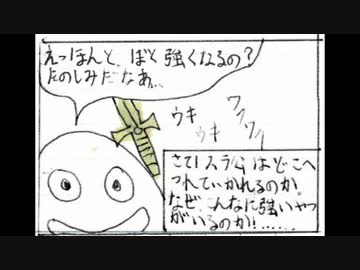 えっほんと、ぼく強くなるの？
たのしみだなぁ…
ウキ
ウキ
ワク
ワク
さて！スラ公はどこへ
つれていかれるのか。
なぜ、こんなに強いやつ
がいるのか！……